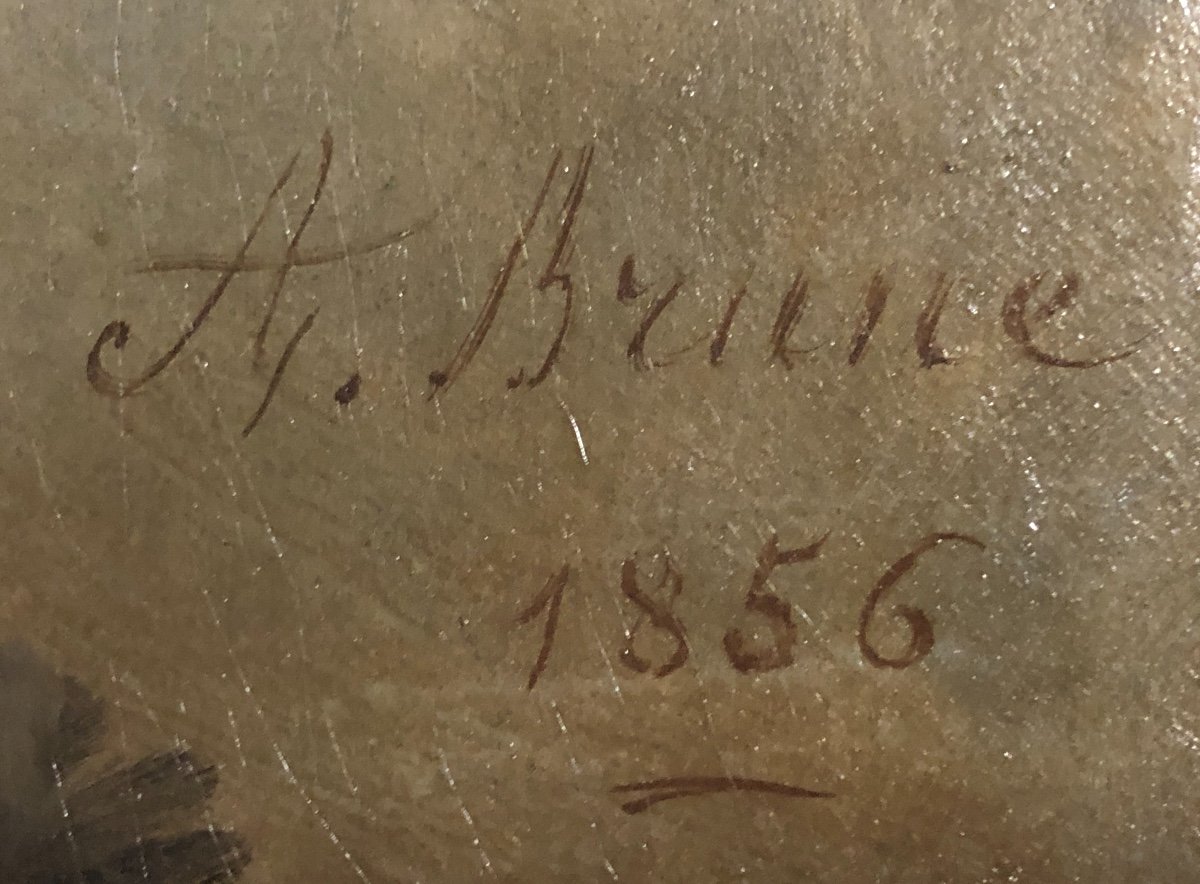 A. Brune
1856